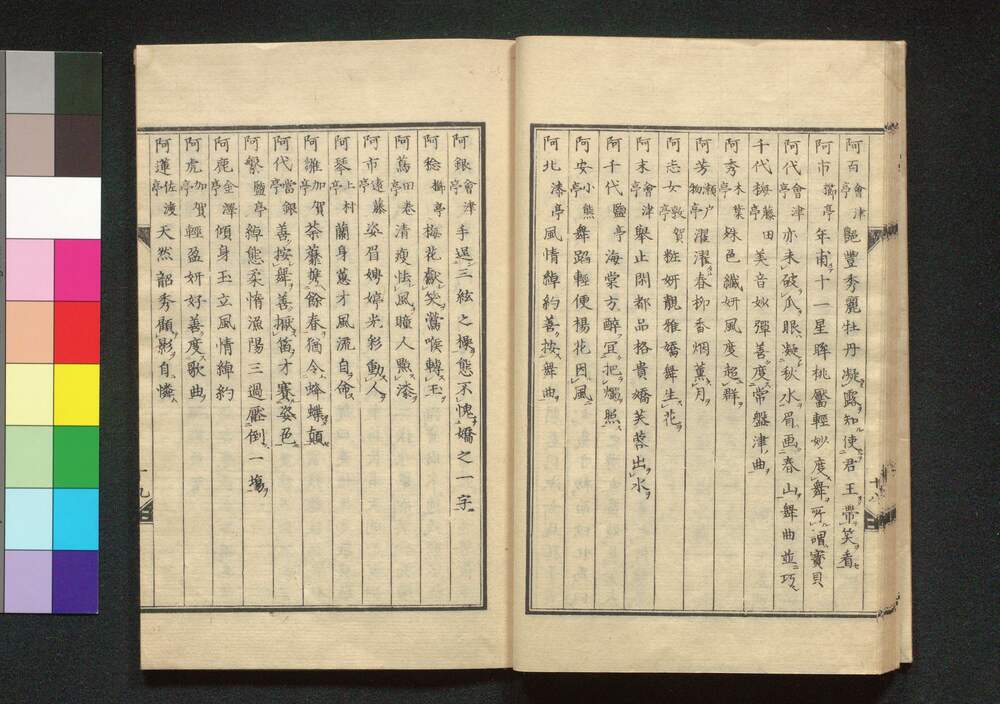 阿百會津亭艶豐秀麗牡丹凝露知使君王帶笑看
阿市擲亭年甫十一星眸桃靨輕妙度舞所謂寶貝
阿代會津亭亦未破瓜眼凝秋水眉画春山舞曲並巧
千代梅藤田亭美音妙彈善度常盤津曲
阿秀木葉亭殊色纖妍風度超群
阿芳瀬戸物亭濯濯春柳香烟薫月
阿志女敦賀亭粧妍靚雅嬌舞生花
阿末會津亭舉止閑都品格貴嬌芙蓉出水
阿千代鹽亭海棠方醉宜把燭照
阿安小熊亭舞蹈輕便楊花因風
阿北漆亭風情綽約善按舞曲
十八
阿銀會津亭手選三絃之操態不愧嬌之一字
阿稔擲亭梅花獻笑鶯喉轉玉
阿蔦田巷亭清瘦怯風瞳人點漆
阿市遠藤亭姿眉娉婷光彩動人
阿琴上村亭蘭身蕙才風流自命
阿誰加賀亭荼蘼媵餘春猶令蜂蝶顛
阿代當銀亭善按舞善摵笛才賽姿色
阿繁鹽亭綽態柔情漁陽三過壓倒一場
阿鹿金澤亭傾身玉立風情綽約
阿虎加賀亭輕盈妍好善度歌曲
阿蓮佐渡亭天然韶秀顧影自憐
十九